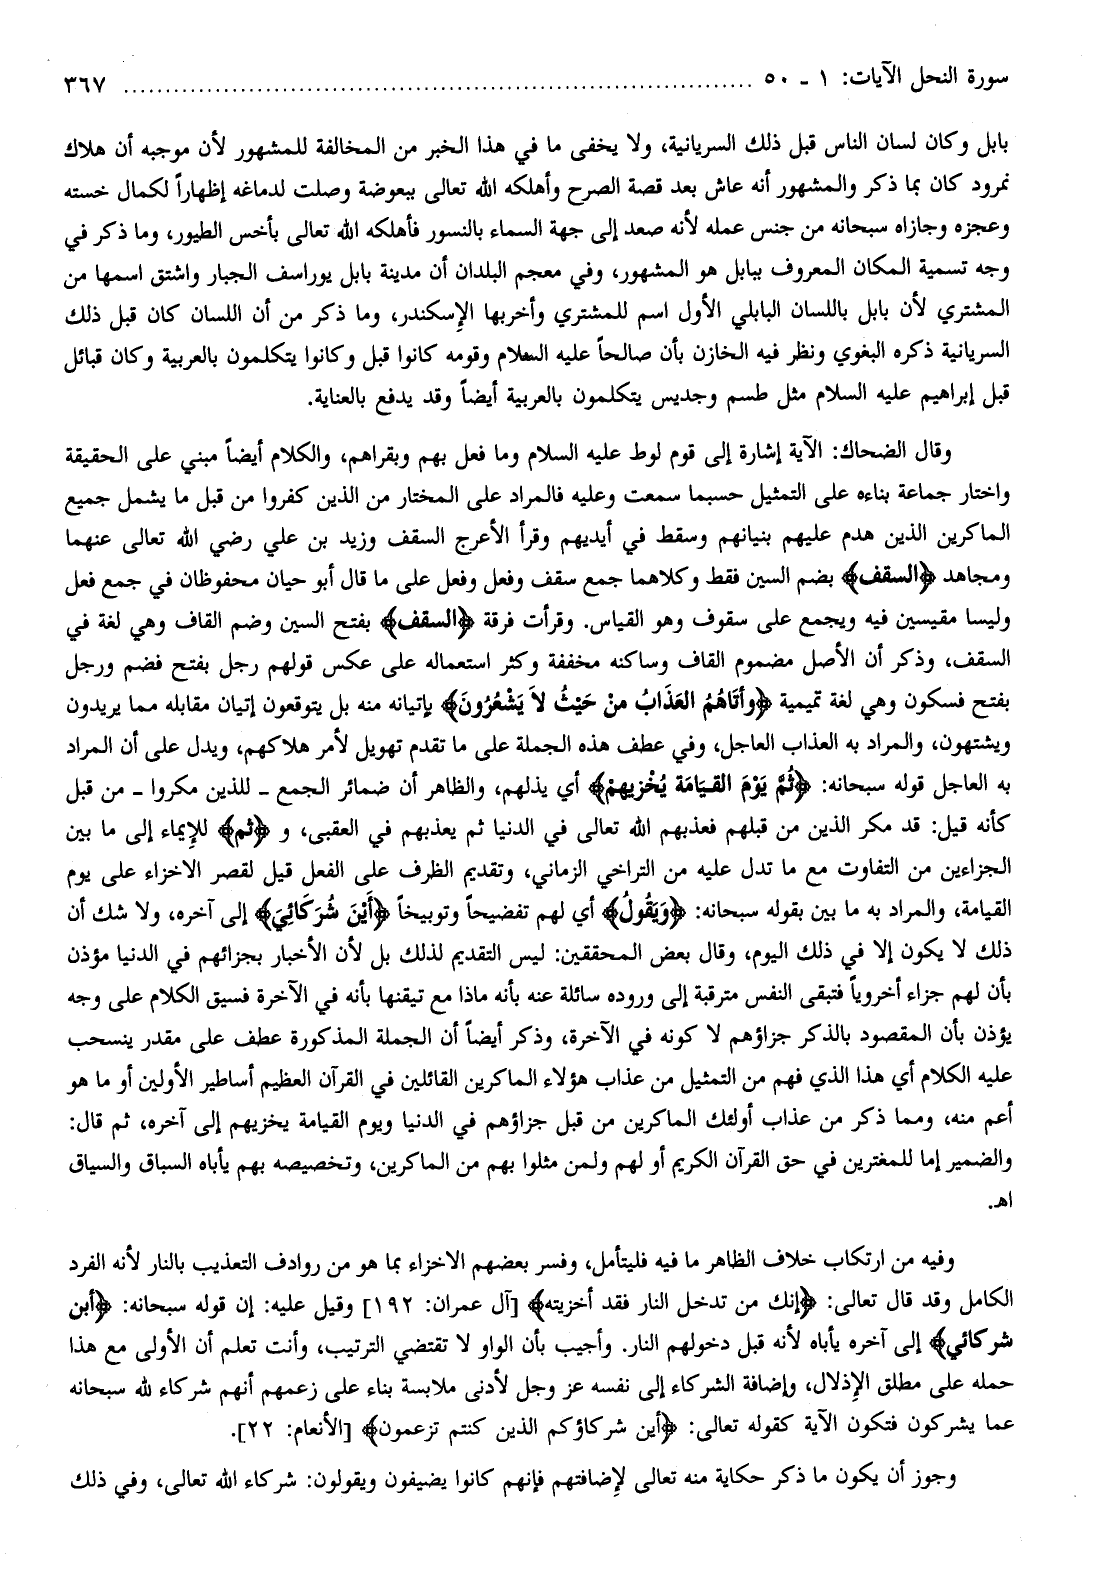 سورة النحل الآيات: ١ ـ ٥٠ ........................................ ٣٦٧
بابل وكان لسان الناس قبل ذلك السريانية، ولا يخفى ما في هذا الخبر من المخالفة للمشهور لأن موجبه أن هلاك
نمرود كان بما ذكر والمشهور أنه عاش بعد قصة الصرح وأهلكه الله تعالى ببعوضة وصلت لدماغه إظهاراً لكمال خسته
وعجزه وجازاه سبحانه من جنس عمله لأنه صعد إلى جهة السماء بالنسور فأهلكه الله تعالى بأخس الطيور، وما ذكر في
وجه تسمية المكان المعروف ببابل هو المشهور، وفي معجم البلدان أن مدينة بابل يوراسف الجبار واشتق اسمها من
المشتري لأن بابل باللسان البابلي الأول اسم للمشتري وأخربها الإسكندر، وما ذكر من أن اللسان كان قبل ذلك
السريانية ذكره البغوي ونظر فيه الخازن بأن صالحاً عليه السلام وقومه كانوا قبل وكانوا يتكلمون بالعربية وكان قبائل
قبل إبراهيم عليه السلام مثل طسم وجديس يتكلمون بالعربية أيضاً وقد يدفع بالعناية.
وقال الضحاك: الآية إشارة إلى قوم لوط عليه السلام وما فعل بهم وبقراهم، والكلام أيضاً مبني على الحقيقة
واختار جماعة بناءه على التمثيل حسبما سمعت وعليه فالمراد على المختار من الذين كفروا من قبل ما يشمل جميع
الماكرين الذين هدم عليهم بنيانهم وسقط في أيديهم وقرأ الأعرج السقف وزيد بن علي رضي الله تعالى عنهما
ومجاهد ﴿السقف﴾ بضم السين فقط وكلاهما جمع سقف وفعل وفعل على ما قال أبو حيان محفوظان في جمع فعل
وليسا مقيسين فيه ويجمع على سقوف وهو القياس. وقرأت فرقة ﴿السقف﴾ بفتح السين وضم القاف وهي لغة في
السقف، وذكر أن الأصل مضموم القاف وساكنه مخففة وكثر استعماله على عكس قولهم رجل بفتح فضم ورجل
بفتح فسكون وهي لغة تميمية ﴿وأتَاهُمُ العَذَابُ منْ حَيْثُ لاَ يَشْعُرُونَ﴾ بإتيانه منه بل يتوقعون إتيان مقابله مما يريدون
ويشتهون، والمراد به العذاب العاجل، وفي عطف هذه الجملة على ما تقدم تهويل لأمر هلاكهم، ويدل على أن المراد
به العاجل قوله سبحانه: ﴿ثُمَّ يَوْمَ القيَامَة يُخْزيهمْ﴾ أي يذلهم، والظاهر أن ضمائر الجمع ـ للذين مكروا ـ من قبل
كأنه قيل: قد مكر الذين من قبلهم فعذبهم الله تعالى في الدنيا ثم يعذبهم في العقبى، و ﴿ثم﴾ للإيماء إلى ما بين
الجزاءين من التفاوت مع ما تدل عليه من التراخي الزماني، وتقديم الظرف على الفعل قيل لقصر الاخزاء على يوم
القيامة، والمراد به ما بين بقوله سبحانه: ﴿وَيَقُولُ﴾ أي لهم تفضيحاً وتوبيخاً ﴿أَيْنَ شُرَكَائِيَ﴾ إلى آخره، ولا شك أن
ذلك لا يكون إلا في ذلك اليوم، وقال بعض المحققين: ليس التقديم لذلك بل لأن الأخبار بجزائهم في الدنيا مؤذن
بأن لهم جزاء أخروياً فتبقى النفس مترقبة إلى وروده سائلة عنه بأنه ماذا مع تيقنها بأنه في الآخرة فسيق الكلام على وجه
يؤذن بأن المقصود بالذكر جزاؤهم لا كونه في الآخرة، وذكر أيضاً أن الجملة المذكورة عطف على مقدر ينسحب
عليه الكلام أي هذا الذي فهم من التمثيل من عذاب هؤلاء الماكرين القائلين في القرآن العظيم أساطير الأولين أو ما هو
أعم منه، ومما ذكر من عذاب أولئك الماكرين من قبل جزاؤهم في الدنيا ويوم القيامة يخزيهم إلى آخره، ثم قال:
والضمير إما للمغترين في حق القرآن الكريم أو لهم ولمن مثلوا بهم من الماكرين، وتخصيصه بهم يأباه السباق والسياق
اهـ.
وفيه من ارتكاب خلاف الظاهر ما فيه فليتأمل، وفسر بعضهم الاخزاء بما هو من روادف التعذيب بالنار لأنه الفرد
الكامل وقد قال تعالى: ﴿إنك من تدخل النار فقد أخزيته﴾ [آل عمران: ١٩٢] وقيل عليه: إن قوله سبحانه: ﴿أين
شركائي﴾ إلى آخره يأباه لأنه قبل دخولهم النار. وأجيب بأن الواو لا تقتضي الترتيب، وأنت تعلم أن الأولى مع هذا
حمله على مطلق الإذلال، وإضافة الشركاء إلى نفسه عز وجل لأدنى ملابسة بناء على زعمهم أنهم شركاء لله سبحانه
عما يشركون فتكون الآية كقوله تعالى: ﴿أين شركاؤكم الذين كنتم تزعمون﴾ [الأنعام: ٢٢].
وجوز أن يكون ما ذكر حكاية منه تعالى لإضافتهم فإنهم كانوا يضيفون ويقولون: شركاء الله تعالى، وفي ذلك